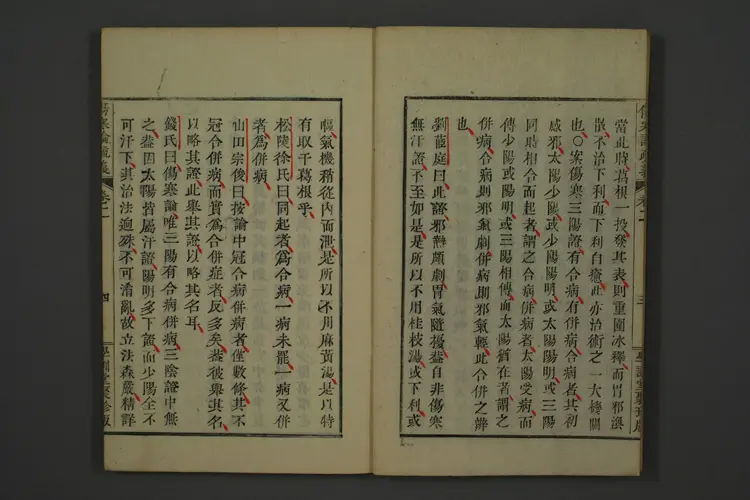 當此時葛根一投發其表則重圍冰釋而胃邪渙
散不治下利而下利自癒此亦治術之一大機關
也○案傷寒三陽證有合病有併病合病者其初
感邪太陽少陽或少陽陽明或太陽陽明或三陽
同時相合而起者謂之合病併病者太陽受病而
傳少陽或陽明或三陽相傳而太陽猶在者謂之
併病合病則邪氣劇併病則邪氣輕此合併之辨
也
劉蓝庭曰此證邪勢頗劇胃氣隨擾蓋自非傷寒
無汗證不至如是是所以不用桂枝湯或下利或
嘔氣機稍從內而泄是所以不用麻黃湯是以特
有取于葛根乎
松陵徐氏曰同起者為合病一病未罷一病又併
者為併病
山田宗俊曰按論中冠合病併病者僅數條其不
冠合併病而實為合併症者反多矣葢彼舉其名
以略其證此舉其證以略其名耳
錢氏曰傷寒論唯三陽有合病併病三陰證中無
之葢因太陽皆屬汗證陽明多下證而少陽全不
可汗下其治法迥殊不可淆亂故立法森嚴精詳
傷寒論疏義 卷二 四